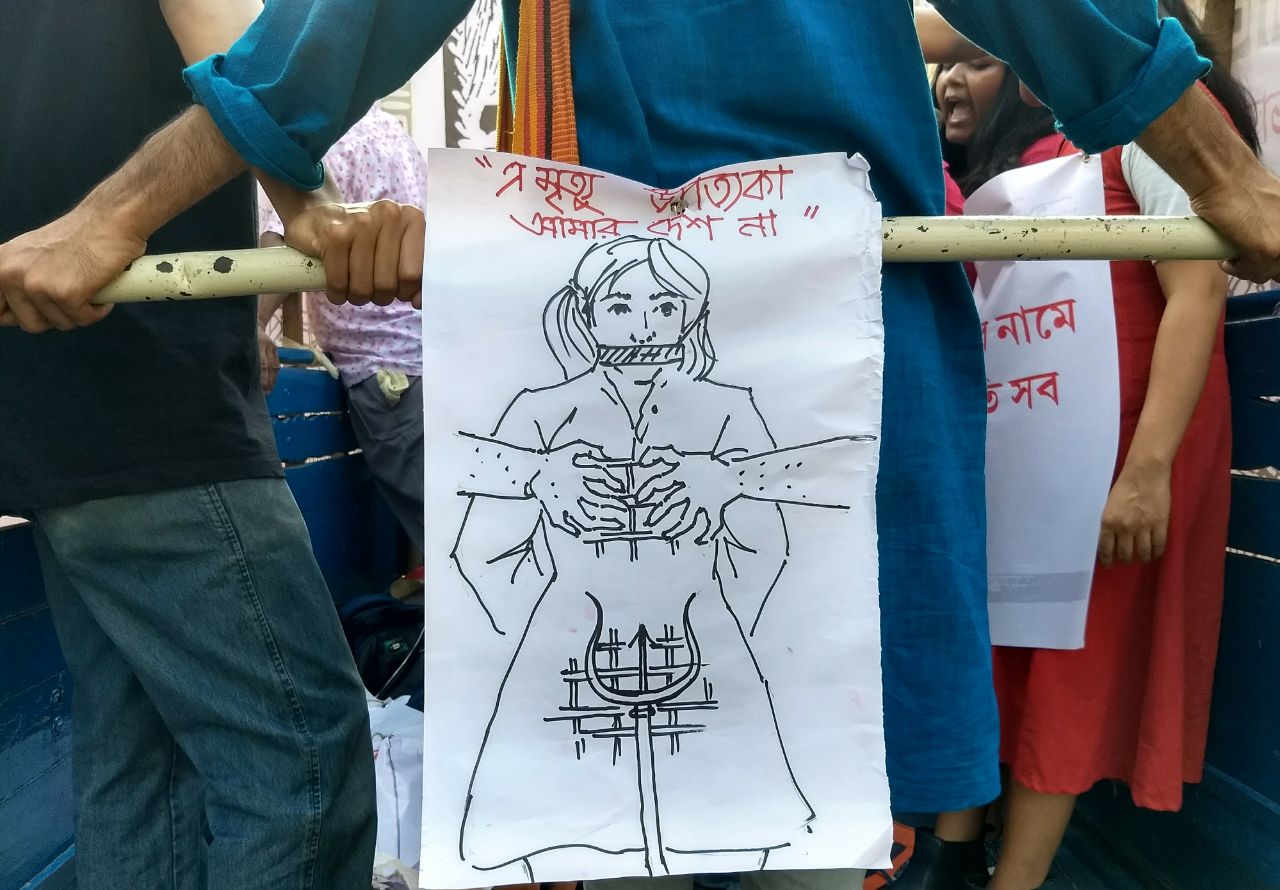 "এ মৃত্যু উপত্যকা
আমার দেশ না"
নামে
সব